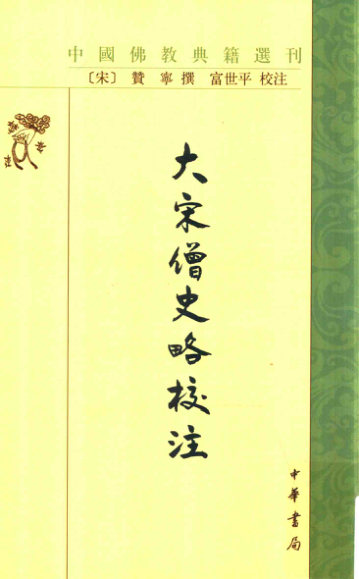 中國佛教典籍選刊
〔宋〕 贊寧撰 富世平校注
大宋僧史略校注
中華書局